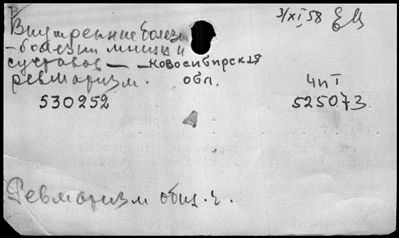 3/XI 58
Внутренние болезни
- болезни мышц и
суставов — Новосибирская
ревматизм. обл. 4пI
530252 525073
Ревматизм общ. ч.